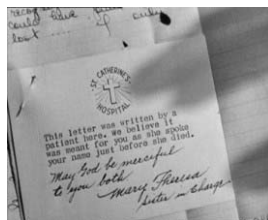 could have
lost
ST. CATHERINE'S
HOSPITAL
This letter was written by a
patient here. we believe it
was meant for you as she spoke
your name just before she died.
May God be merciful
to you both
Mary Theresa
Sister in Charge